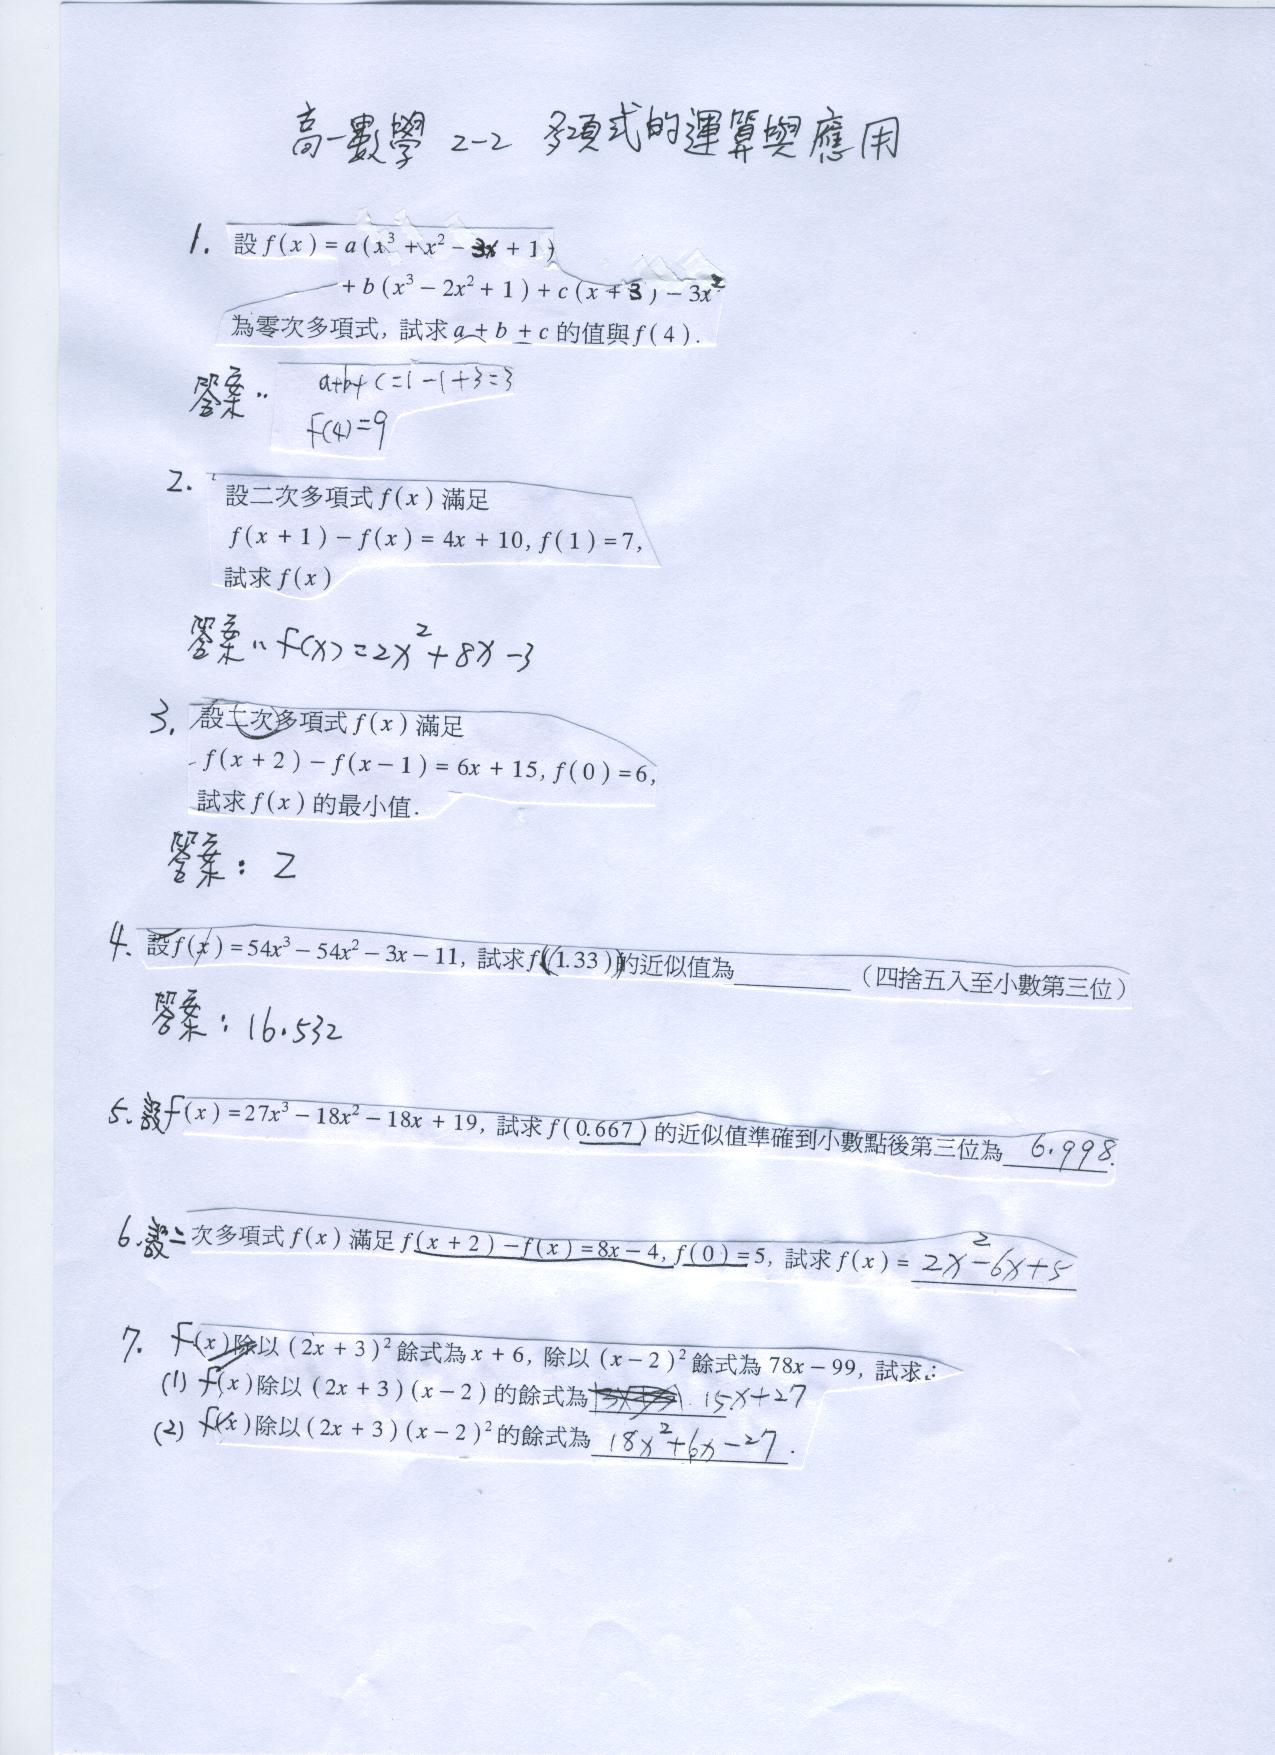 高一數學 2-2 多項式的運算與應用
1. 設 f(x) = a(x³ + x² - 3x + 1)
+ b(x³ - 2x² + 1) + c(x + 3) - 3x²
為零次多項式, 試求 a + b + c 的值與 f(4).
答案: a+b+c=1-1+3=3
f(4)=9
2. 設二次多項式 f(x) 滿足
f(x + 1) - f(x) = 4x + 10, f(1) = 7,
試求 f(x)
答案: f(x)=2x²+8x-3
3. 設二次多項式 f(x) 滿足
f(x + 2) - f(x - 1) = 6x + 15, f(0) = 6,
試求 f(x) 的最小值.
答案: 2
4. 設 f(x) = 54x³ - 54x² - 3x - 11, 試求 f(1.33) 的近似值為________ (四捨五入至小數第三位)
答案: 16.532
5. 設 f(x) = 27x³ - 18x² - 18x + 19, 試求 f(0.667) 的近似值準確到小數點後第三位為 6.998.
6. 設二次多項式 f(x) 滿足 f(x + 2) - f(x) = 8x - 4, f(0) = 5, 試求 f(x) = 2x²-6x+5
7. f(x) 除以 (2x + 3)² 餘式為 x + 6, 除以 (x - 2)² 餘式為 78x - 99, 試求:
(1) f(x) 除以 (2x + 3)(x - 2) 的餘式為 15x+27
(2) f(x) 除以 (2x + 3)(x - 2)² 的餘式為 18x²+6x-27.